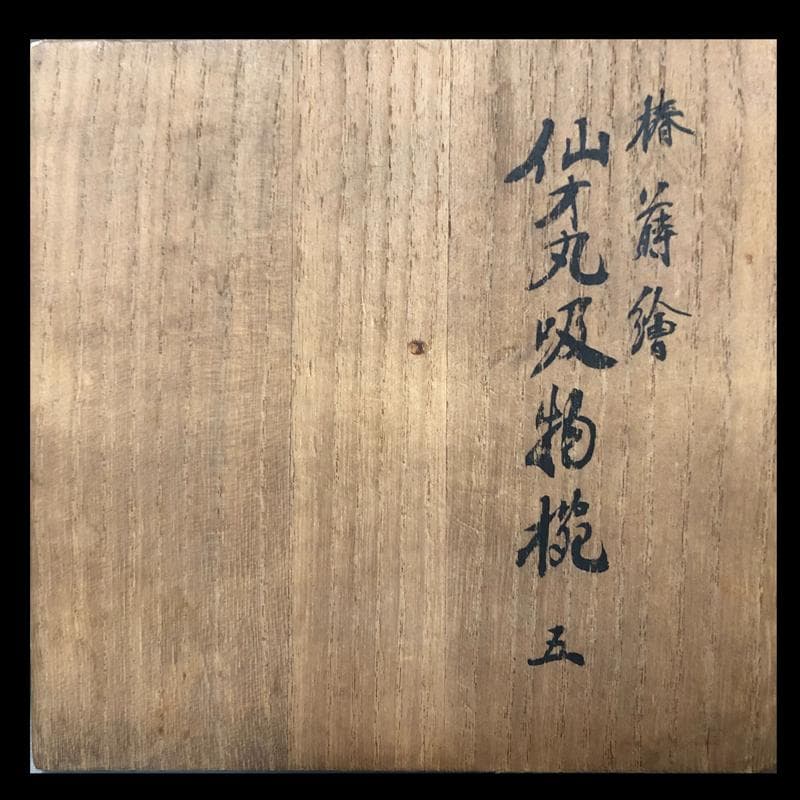 椿蒔繪
仙才丸吸物椀 五